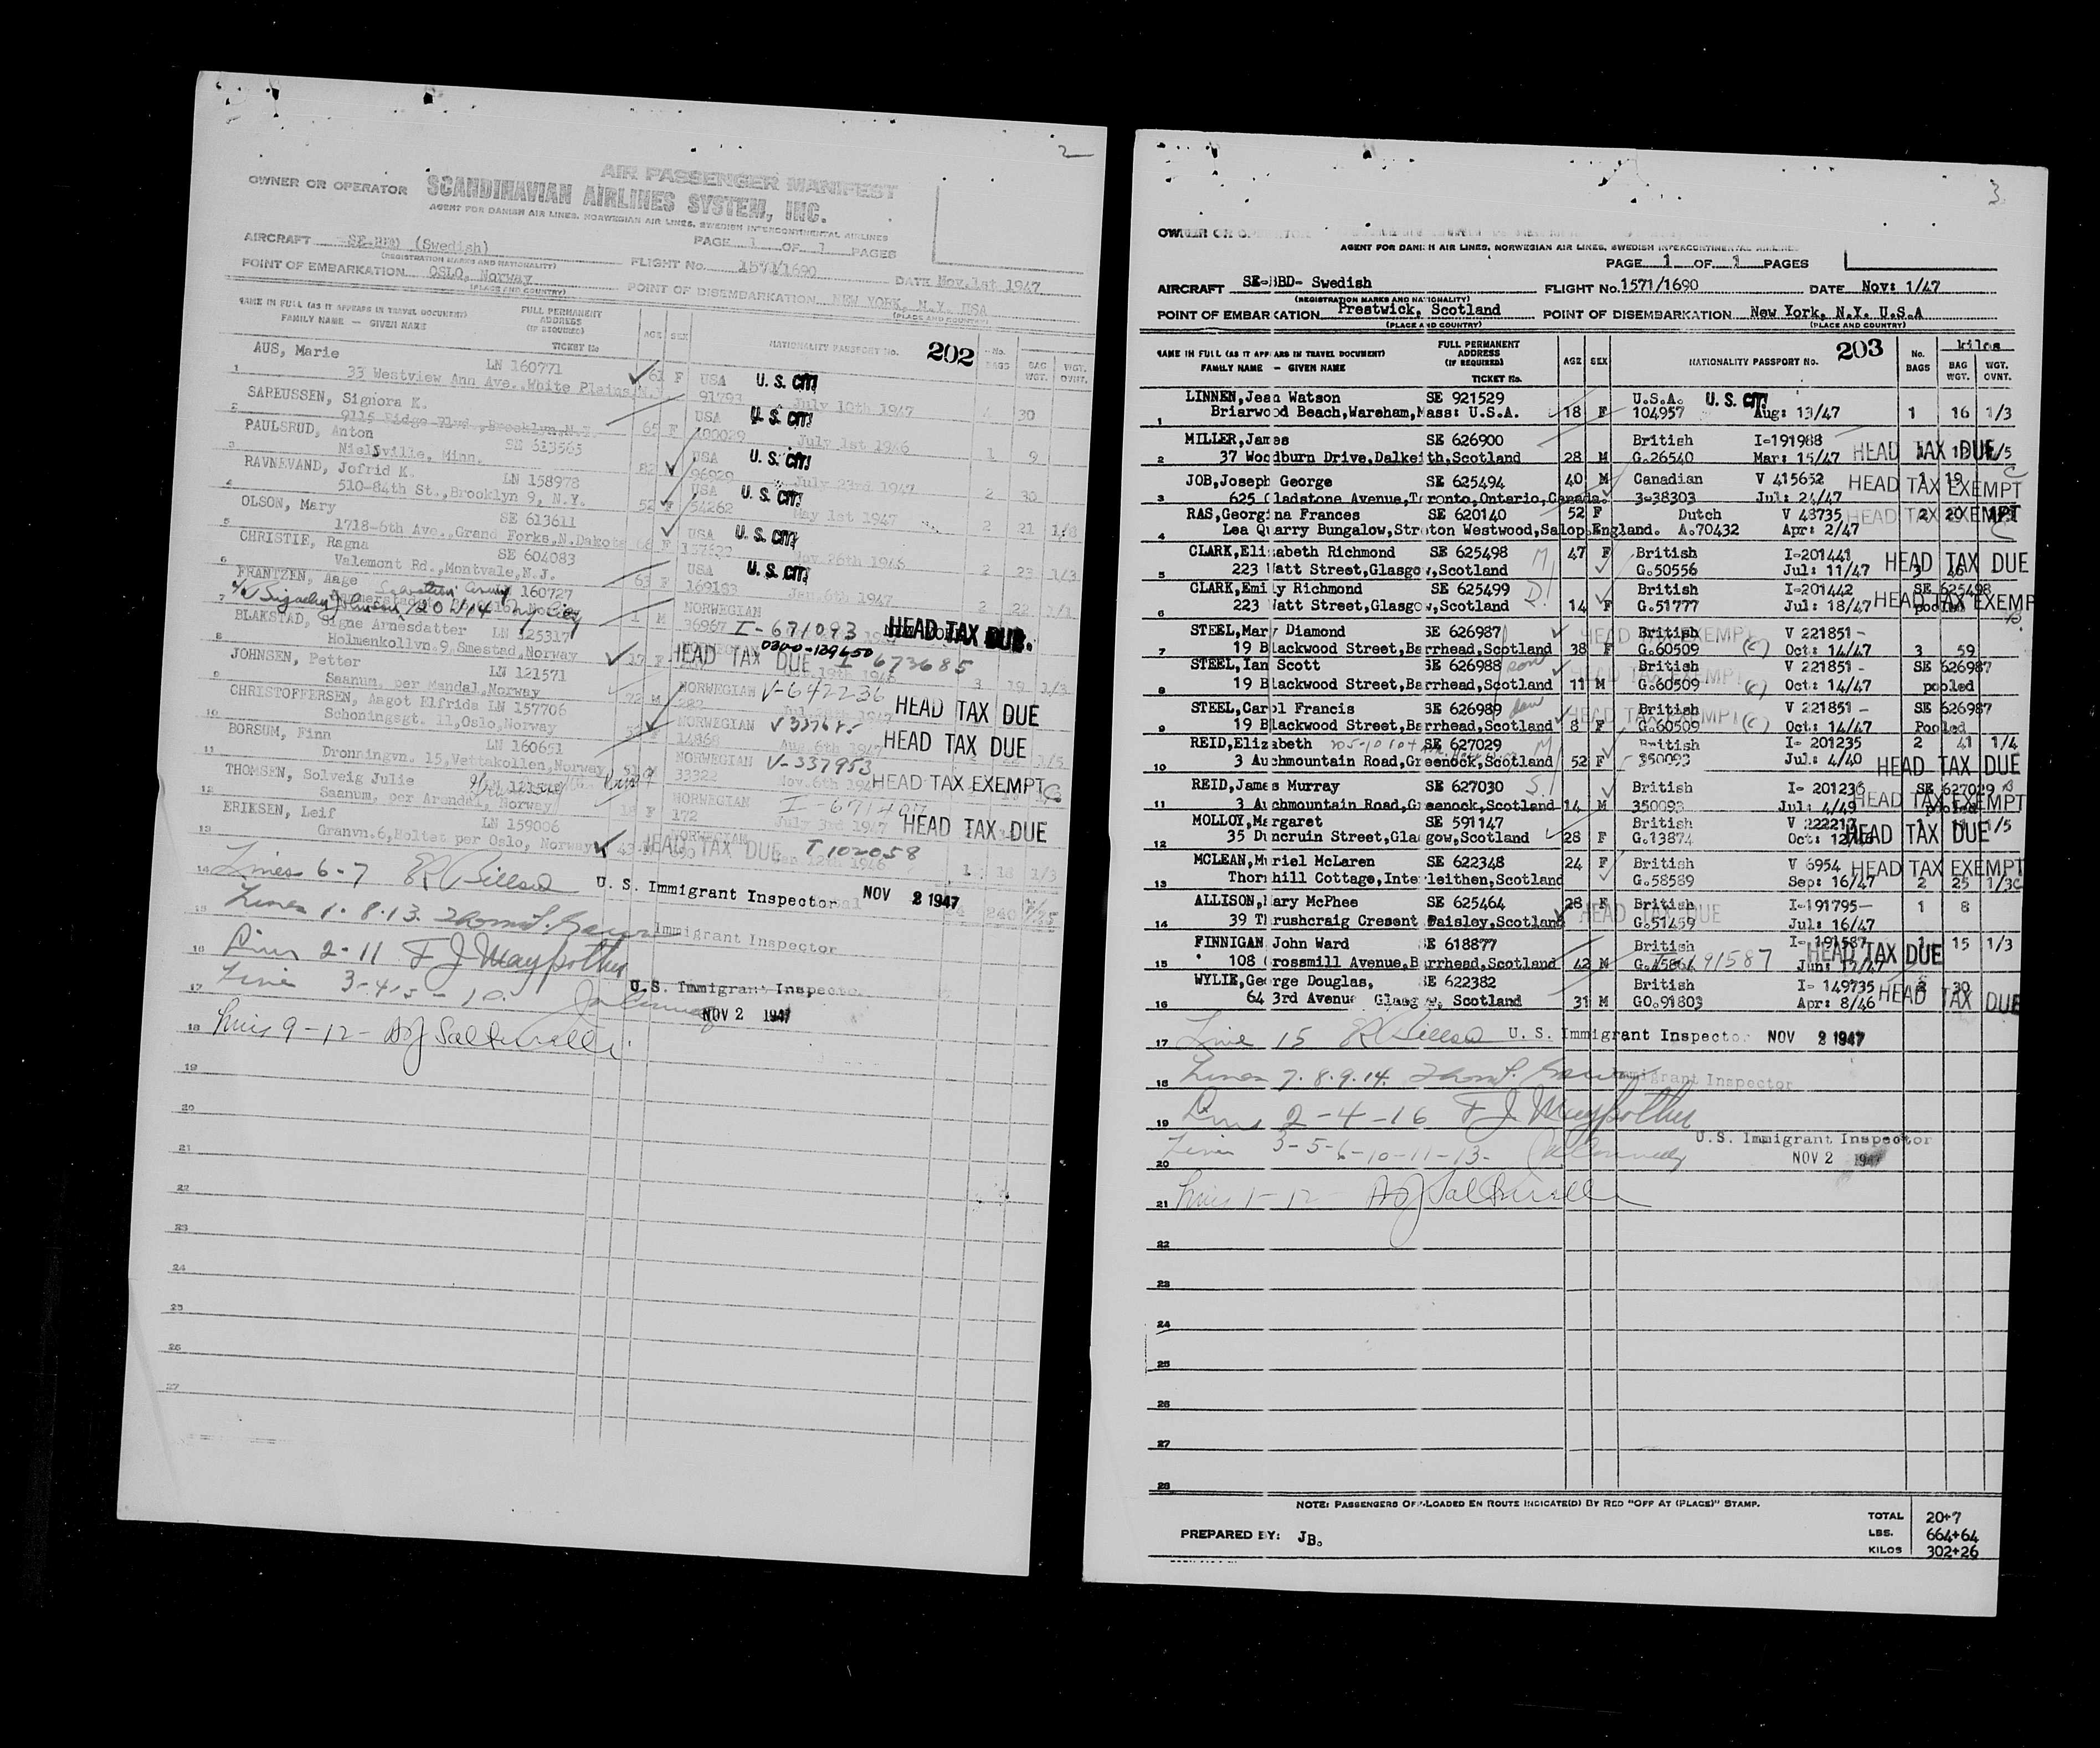 2
AIR PASSENGER MANIFEST
OWNER OR OPERATOR SCANDINAVIAN AIRLINES SYSTEM, INC.
AGENT FOR DANISH AIR LINES, NORWEGIAN AIR LINES, SWEDISH INTERCONTINENTAL AIRLINES
PAGE 1 OF 1 PAGES
AIRCRAFT SE-BBD (Swedish)
(REGISTRATION MARKS AND NATIONALITY)
FLIGHT No. 1571/1690 DATE Nov.1st 1947
POINT OF EMBARKATION OSLO, Norway
(PLACE AND COUNTRY)
POINT OF DISEMBARKATION NEW YORK, N.Y. USA
(PLACE AND COUNTRY)
NAME IN FULL (AS IT APPEARS IN TRAVEL DOCUMENT) FULL PERMANENT ADDRESS (IF REQUIRED)
FAMILY NAME — GIVEN NAME TICKET No AGE SEX NATIONALITY PASSPORT No. 202 No. BAGS BAG WGT. WGT. OVNT.
AUS, Marie LN 160771
1 33 Westview Ann Ave.,White Plains,N.Y. F USA U. S. CIT.
91793 July 10th 1947 30
SAREUSSEN, Signora K.
2 9115 Ridge Blvd.,Brooklyn,N.Y. 65 F USA U. S. CIT.
100029 July 1st 1946 1 9
PAULSRUD, Anton SE 613565
3 Nielsville, Minn. 82 USA U. S. CIT.
96929 July 23rd 1947 2 30
RAVNEVAND, Jofrid K. LN 158978
4 510-84th St.,Brooklyn 9, N.Y. 52 F USA U. S. CIT.
54262 May 1st 1947 2 21 1/8
OLSON, Mary SE 613611
5 1718-6th Ave.,Grand Forks,N.Dakota 68 F USA U. S. CIT.
Nov.26th 1946 2 23 1/3
CHRISTIE, Ragna SE 604083
6 Valemont Rd.,Montvale,N.J. 63 F USA U. S. CIT.
169183 Jan.6th 1947 2 22 1/1
FRANTZEN, Aage 160727
7 M NORWEGIAN
36967 I-671093 HEAD TAX DUE.
BLAKSTAD, Signe Arnesdatter LN 125317
8 Holmenkollvn.9,Smestad,Norway 17 F HEAD TAX DUE 0300-129650 I 673685
Oct.19th 1946 3 19 1/3
JOHNSEN, Petter LN 121571
9 Saanum, per Mandal,Norway 72 M NORWEGIAN V-642236
282 HEAD TAX DUE
CHRISTOFFERSEN, Aagot Elfrida LN 157706
10 Schoningsgt. 11,Oslo,Norway NORWEGIAN
14868 Aug.6th 1947 HEAD TAX DUE
BORSUM, Finn LN 160651
11 Dronningvn. 15,Vettakollen,Norway 51 NORWEGIAN V-337953
33322 Nov.6th HEAD TAX EXEMPT
THOMSEN, Solveig Julie
12 Saanum, per Arendal, Norway 18 F NORWEGIAN
172 July 3rd 1947 HEAD TAX DUE
ERIKSEN, Leif LN 159006
13 Granvn.6,Holtet per Oslo, Norway 43 HEAD TAX DUE T 102058
1 18 1/3
14 Lines 6-7 U. S. Immigrant Inspector NOV 2 1947
15 Lines 1. 8. 13. Immigrant Inspector 240
16 Lines 2-11 F J Maypother
17 Lines 3-4-5-10. U.S. Immigrant Inspector
NOV 2 1947
18 Lines 9-12-
19
20
21
22
23
24
25
26
27
3
AGENT FOR DANISH AIR LINES, NORWEGIAN AIR LINES, SWEDISH INTERCONTINENTAL AIRLINES
PAGE 1 OF 1 PAGES
AIRCRAFT SE-BBD- Swedish FLIGHT No. 1571/1690 DATE Nov: 1/47
(REGISTRATION MARKS AND NATIONALITY)
POINT OF EMBARKATION Prestwick, Scotland POINT OF DISEMBARKATION New York, N.Y. U.S.A
(PLACE AND COUNTRY) (PLACE AND COUNTRY)
NAME IN FULL (AS IT APPEARS IN TRAVEL DOCUMENT) FULL PERMANENT ADDRESS (IF REQUIRED) AGE SEX NATIONALITY PASSPORT No. 203 No. BAGS kilos BAG WGT. WGT. OVNT.
FAMILY NAME — GIVEN NAME TICKET No.
LINNEN,Jean Watson SE 921529 U.S.A. U. S. CIT.
1 Briarwood Beach,Wareham,Mass: U.S.A. 18 F 104957 Aug: 13/47 1 16 1/3
MILLER,James SE 626900 British I-191988
2 37 Woodburn Drive,Dalkeith,Scotland 28 M G.26540 Mar: 15/47 HEAD TAX DUE
JOB,Joseph George SE 625494 40 M Canadian V 415652 1 19
3 625 Gladstone Avenue,Toronto,Ontario,Canada. 3-38303 Jul: 24/47 HEAD TAX EXEMPT
RAS,Georgina Frances SE 620140 52 F Dutch V 48735 HEAD TAX EXEMPT 2 20
4 Lea Quarry Bungalow,Stretton Westwood,Salop,England. A.70432 Apr: 2/47
CLARK,Elizabeth Richmond SE 625498 M 47 F British I-201441
5 223 Watt Street,Glasgow,Scotland G.50556 Jul: 11/47 HEAD TAX DUE
CLARK,Emily Richmond SE 625499 D. British I-201442 SE 625498
6 223 Watt Street,Glasgow,Scotland 14 F G.51777 Jul: 18/47 HEAD TAX EXEMP pooled
STEEL,Mary Diamond SE 626987 HEAD TAX EXEMPT British V 221851 -
7 19 Blackwood Street,Barrhead,Scotland 38 F G.60509 (c) Oct: 14/47 3 59
STEEL,Ian Scott SE 626988 son HEAD TAX EXEMPT British V 221851 - SE 626987
8 19 Blackwood Street,Barrhead,Scotland 11 M G.60509 (c) Oct: 14/47 pooled
STEEL,Carol Francis SE 626989 dau HEAD TAX EXEMPT British V 221851 - SE 626987
9 19 Blackwood Street,Barrhead,Scotland 8 F G.60509 (c) Oct: 14/47 Pooled
REID,Elizabeth SE 627029 M British I- 201235 2 41 1/4
10 3 Auchmountain Road,Greenock,Scotland 52 F 350093 Jul: 4/40 HEAD TAX DUE
REID,James Murray SE 627030 S. British I- 201236 SE 627029
11 3 Auchmountain Road,Greenock,Scotland 14 M 350093 Jul: 4/49 HEAD TAX EXEMPT
MOLLOY,Margaret SE 591147 British V 222217 1/5
12 35 Duncruin Street,Glasgow,Scotland 28 F G.13874 Oct: 12/46 HEAD TAX DUE
MCLEAN,Muriel McLaren SE 622348 24 F British V 6954 HEAD TAX EXEMPT
13 Thornhill Cottage,Interleithen,Scotland G.58589 Sep: 16/47 2 25 1/3
ALLISON,Mary McPhee SE 625464 28 F British I-191795- 1 8
14 39 Thrushcraig Cresent Paisley,Scotland HEAD TAX DUE G.51459 Jul: 16/47
FINNIGAN John Ward SE 618877 British I- 191587 15 1/3
15 108 Crossmill Avenue,Barrhead,Scotland 42 M 91587 Jun: 12/47 HEAD TAX DUE
WYLIE,George Douglas, SE 622382 British I- 149735 30
16 64 3rd Avenue Glasgow, Scotland 31 M GO.91803 Apr: 8/46 HEAD TAX DUE
17 Line 15 U. S. Immigrant Inspector NOV 2 1947
18 Lines 7. 8. 9. 14. Immigrant Inspector
19 Lines 2-4-16 F J Maypother
U.S. Immigrant Inspector
20 Lines 3-5-6-10-11-13- NOV 2 1947
21 Lines 1-12
22
23
24
25
26
27
28
NOTE: PASSENGERS OFF-LOADED EN ROUTE INDICATE(D) BY RED "OFF AT (PLACE)" STAMP.
TOTAL 20+7
PREPARED BY: JB. LBS. 664+64
KILOS 302+26